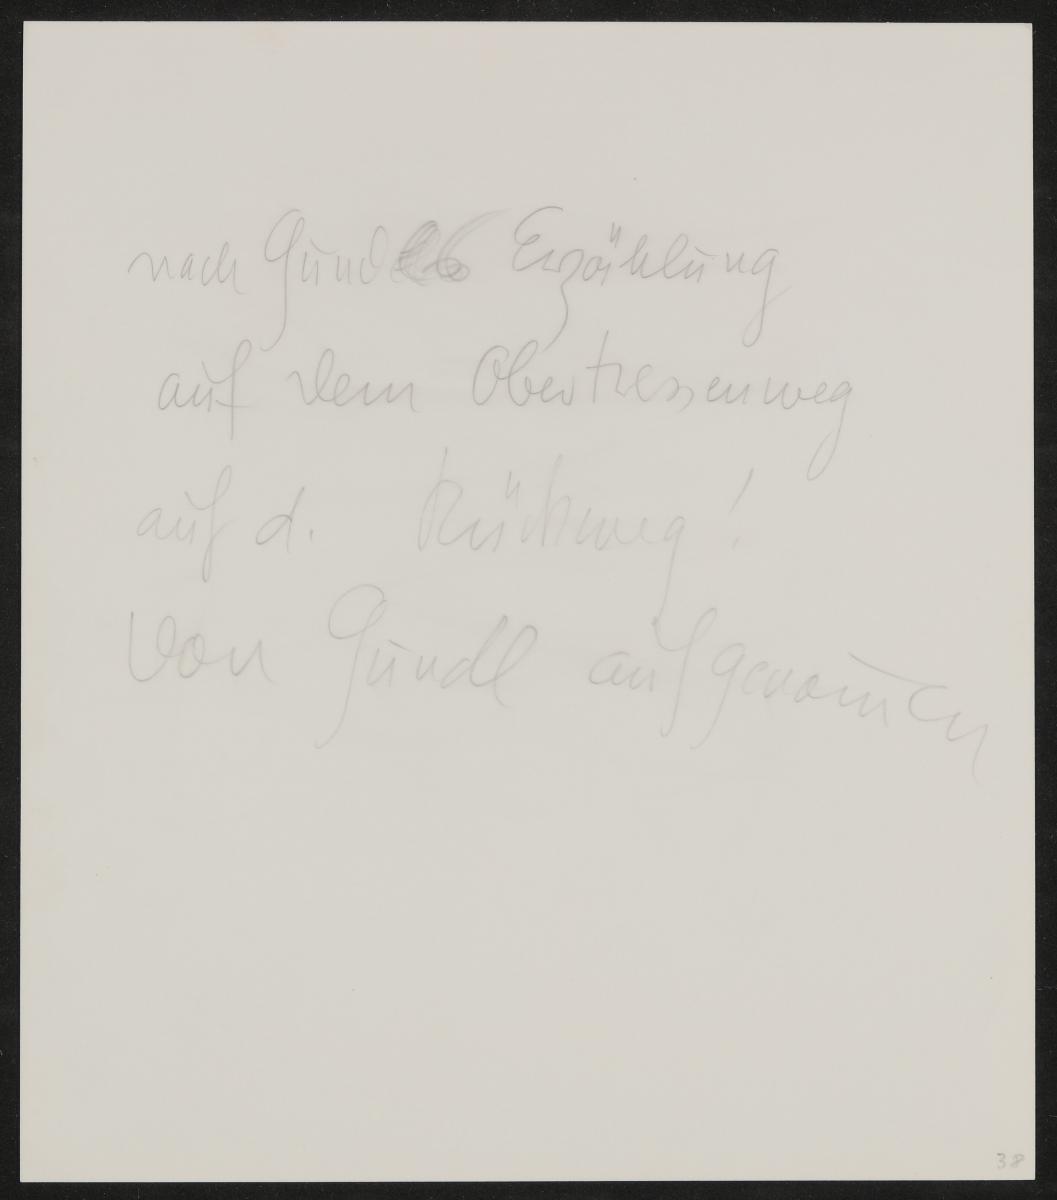 nach Gundls Erzählung
auf dem Obertressenweg
auf d. Rückweg!
Von Gundl aufgenom̅en
38